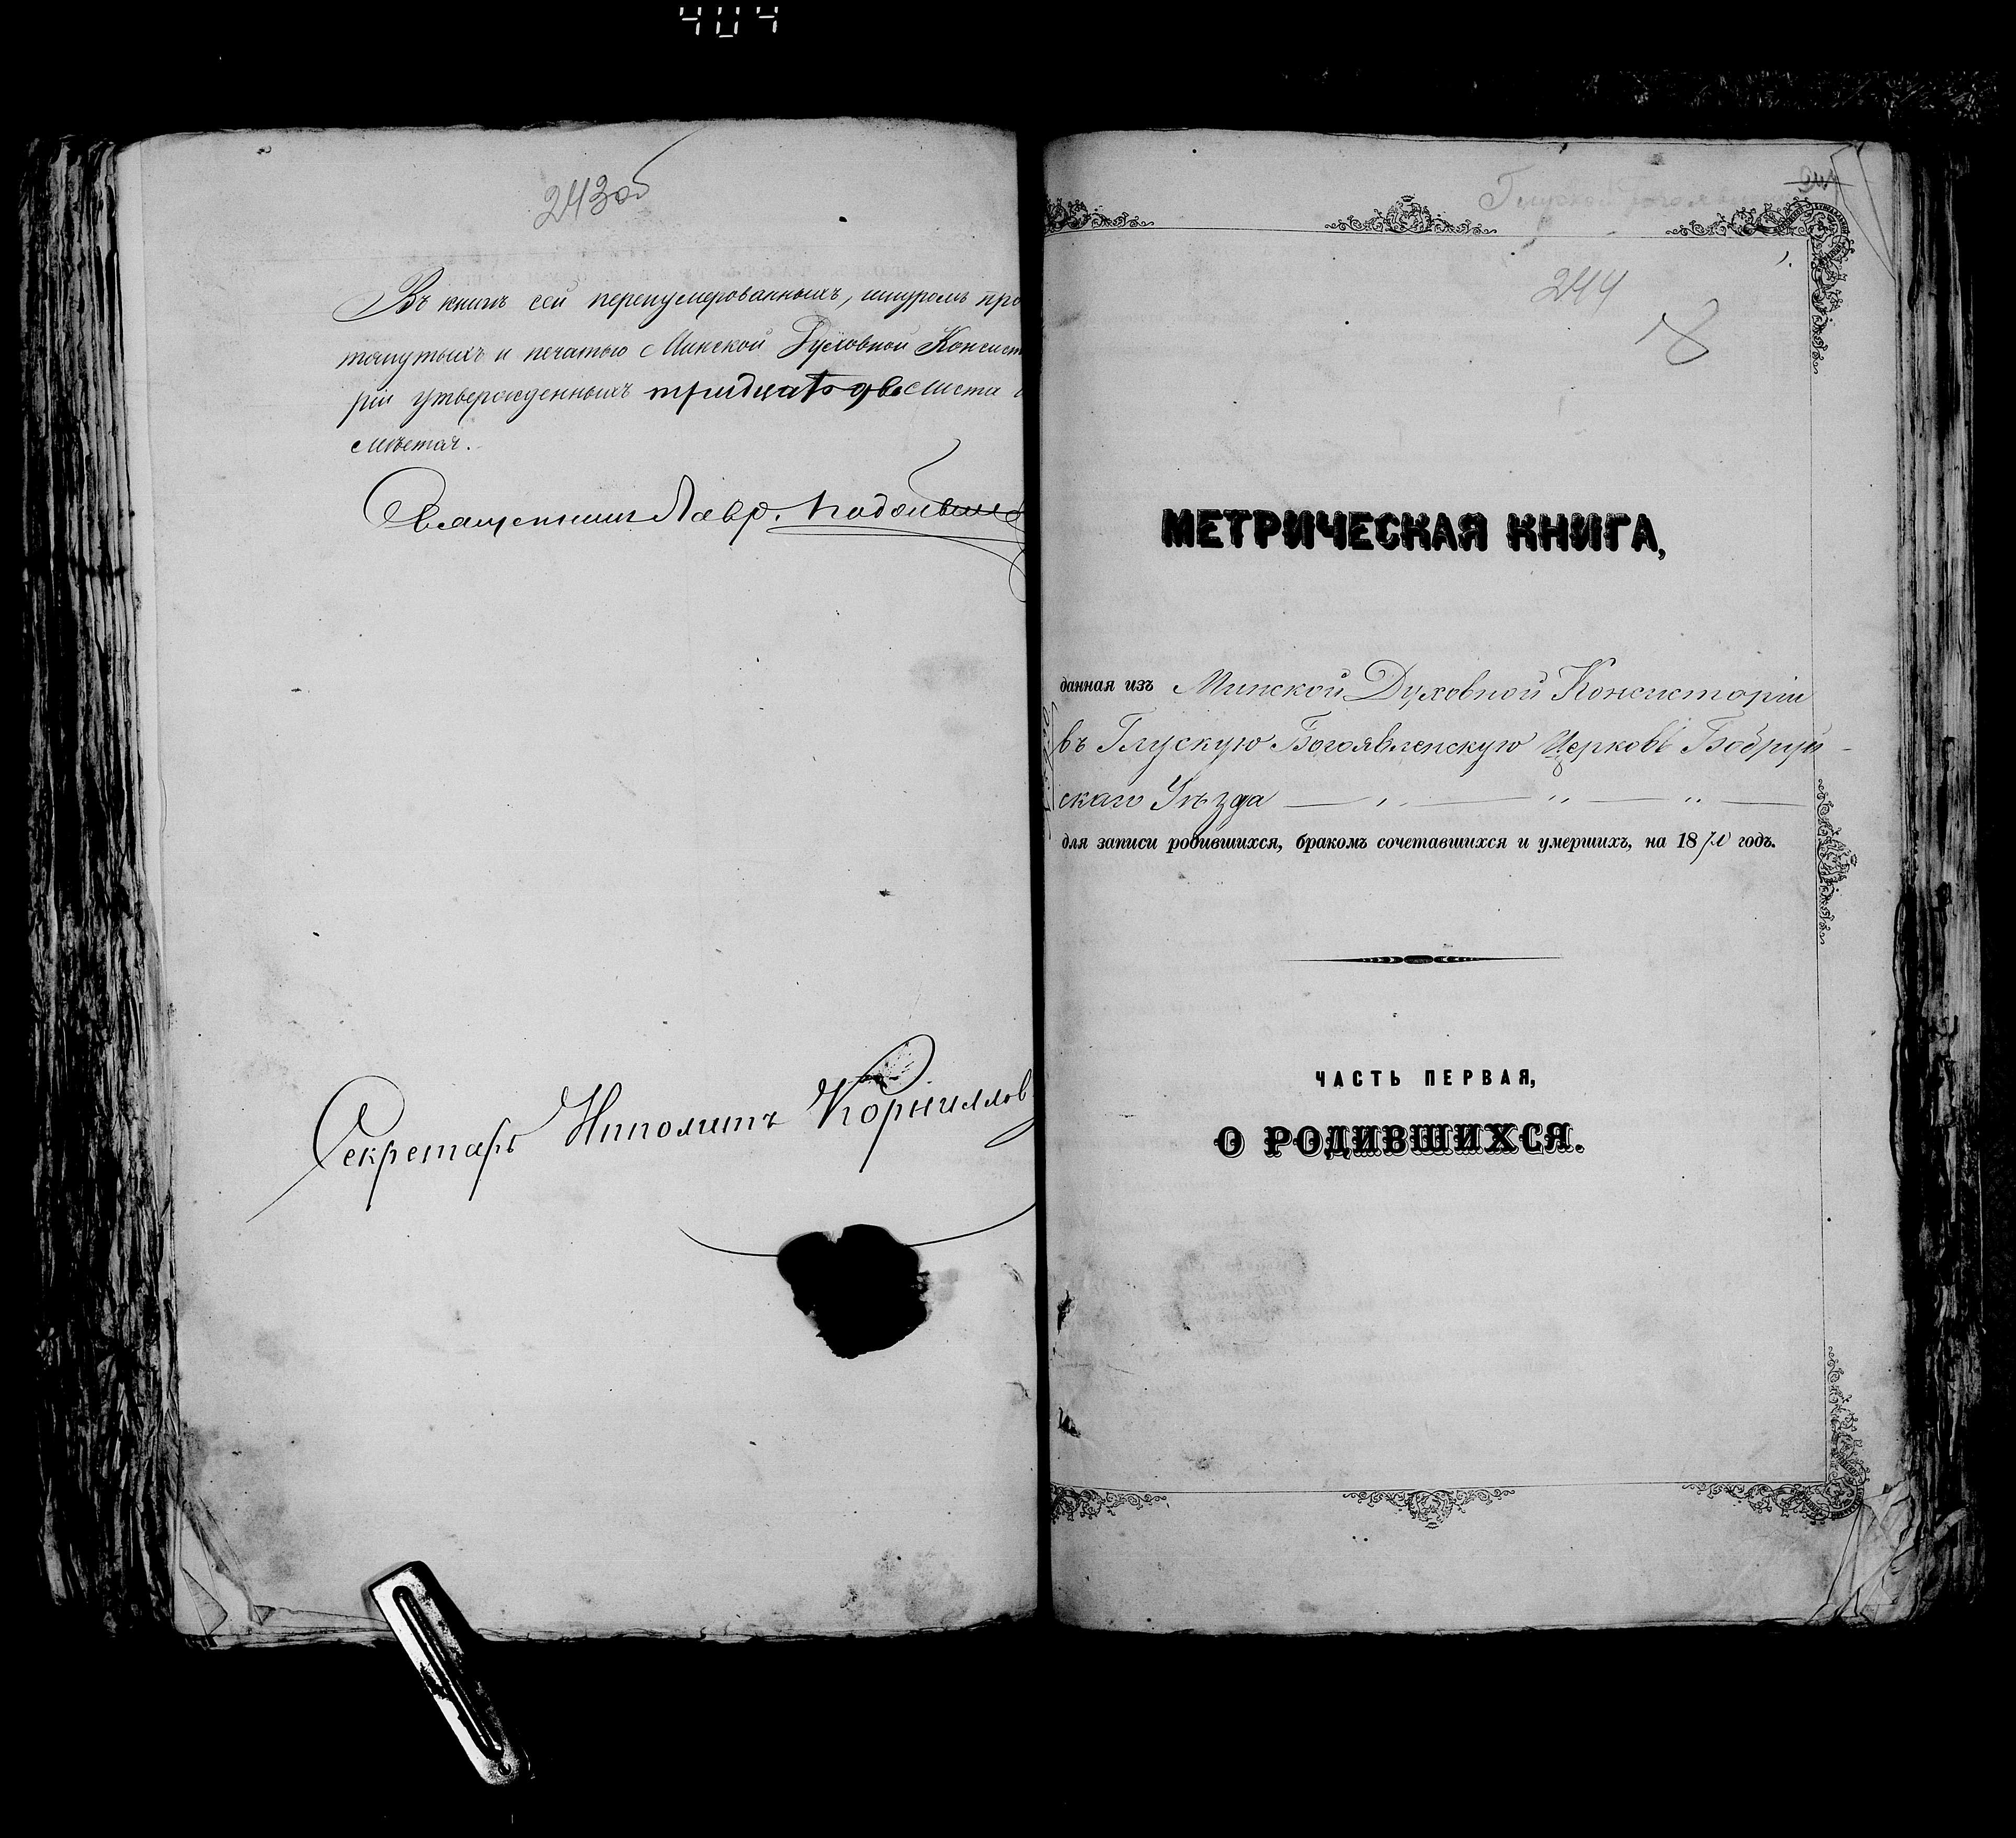 404
243об
Въ книгѣ сей перенумерованныхъ, шнуромъ про
тянутыхъ и печатью Минской Духовной Консисто
ріи утвержденныхъ тридцать два листа
Священникъ Лавр.
Секретарь Ипполитъ Корниллов
Глуской Богоявл
244
18
МЕТРИЧЕСКАЯ КНИГА,
данная изъ Минской Духовной Консисторіи
въ Глускую Богоявленскую Церковь Бобруй-
скаго Уѣзда
для записи родившихся, бракомъ сочетавшихся и умершихъ, на 1870 годъ.
ЧАСТЬ ПЕРВАЯ,
О РОДИВШИХСЯ.